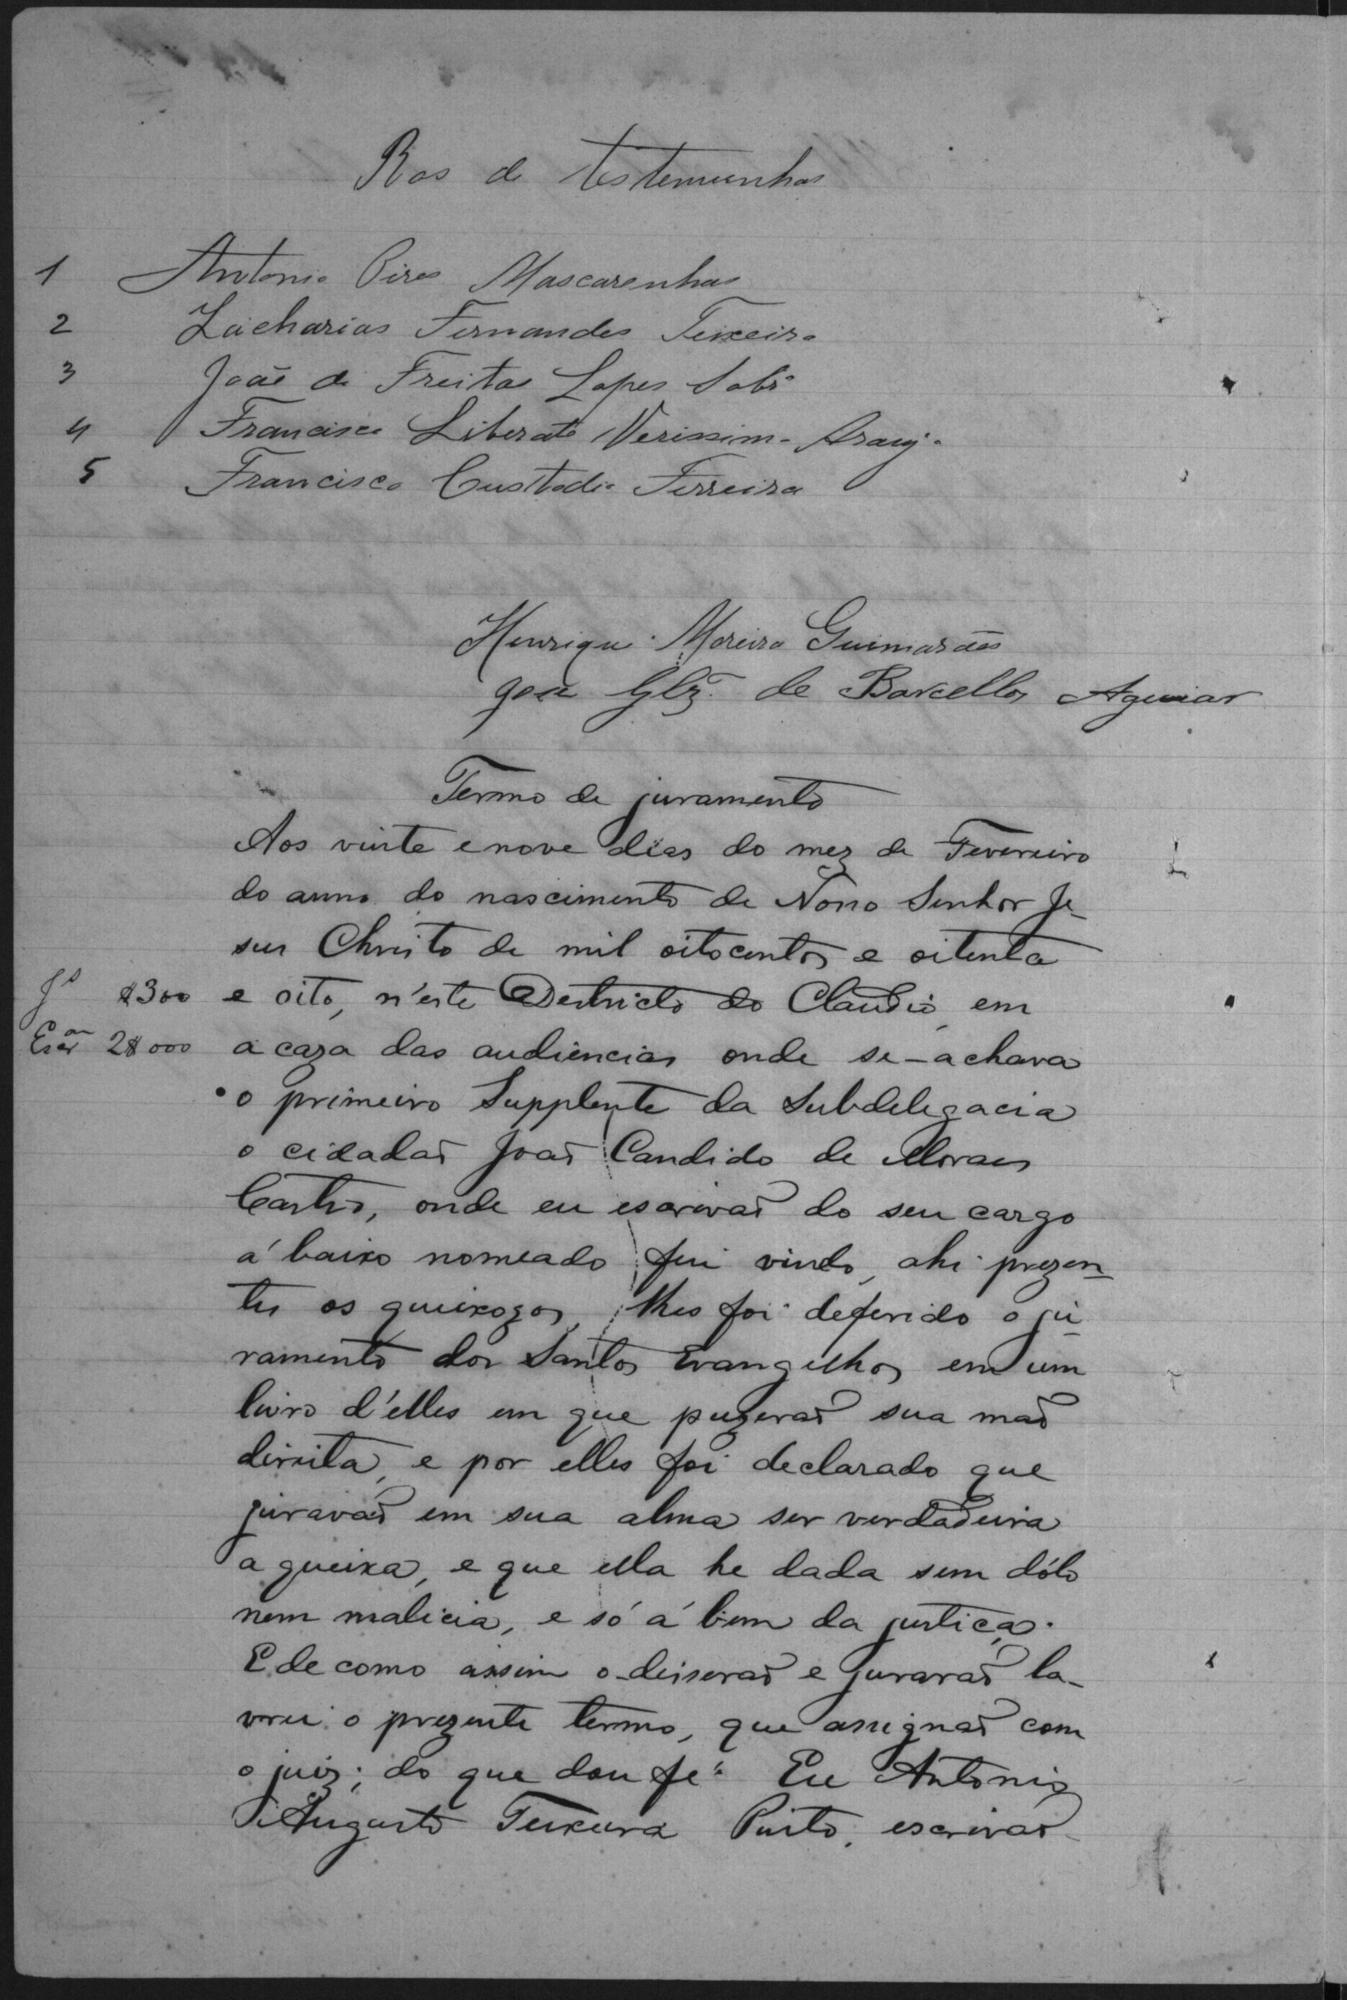 Ros de testemunhas
1 Antonio Pires Mascarenhas
2 Zacharias Fernandes Teixeira
3 João de Freitas Lopes Sobr.º
4 Francisco Liberato Verissimo Araujo
5 Francisco Custodio Ferreira
Henrique Moreira Guimarães
José Glz. de Barcellos Aguiar
Termo de juramento
Aos vinte e nove dias do mez de Fevereiro
do anno do nascimento de Nosso Senhor Je-
sus Christo de mil oitocentos e oitenta
J.s $300 e oito, n'este Destricto do Claudio, em
Escr.am 2$000 a caza das audiencias onde se-achava
o primeiro Supplente da Subdelegacia
o cidadaõ Joaõ Candido de Moraes
Castro, onde eu escrivaõ do seu cargo
á baixo nomeado fui vindo, ahi prezen-
tes os queixozos, lhes foi deferido o ju-
ramento dos Santos Evangelhos em um
livro d'elles em que puzeraõ sua maõ
direita, e por elles foi declarado que
juravaõ em sua alma ser verdadeira
a queixa, e que ella he dada sem dólo
nem malicia, e só á bem da justiça.
E de como assim o-disseraõ e juraraõ la-
vrei o prezente termo, que assignaõ com
o juiz; do que dou fé. Eu Antonio
Augusto Teixeira Pinto, escrivaõ